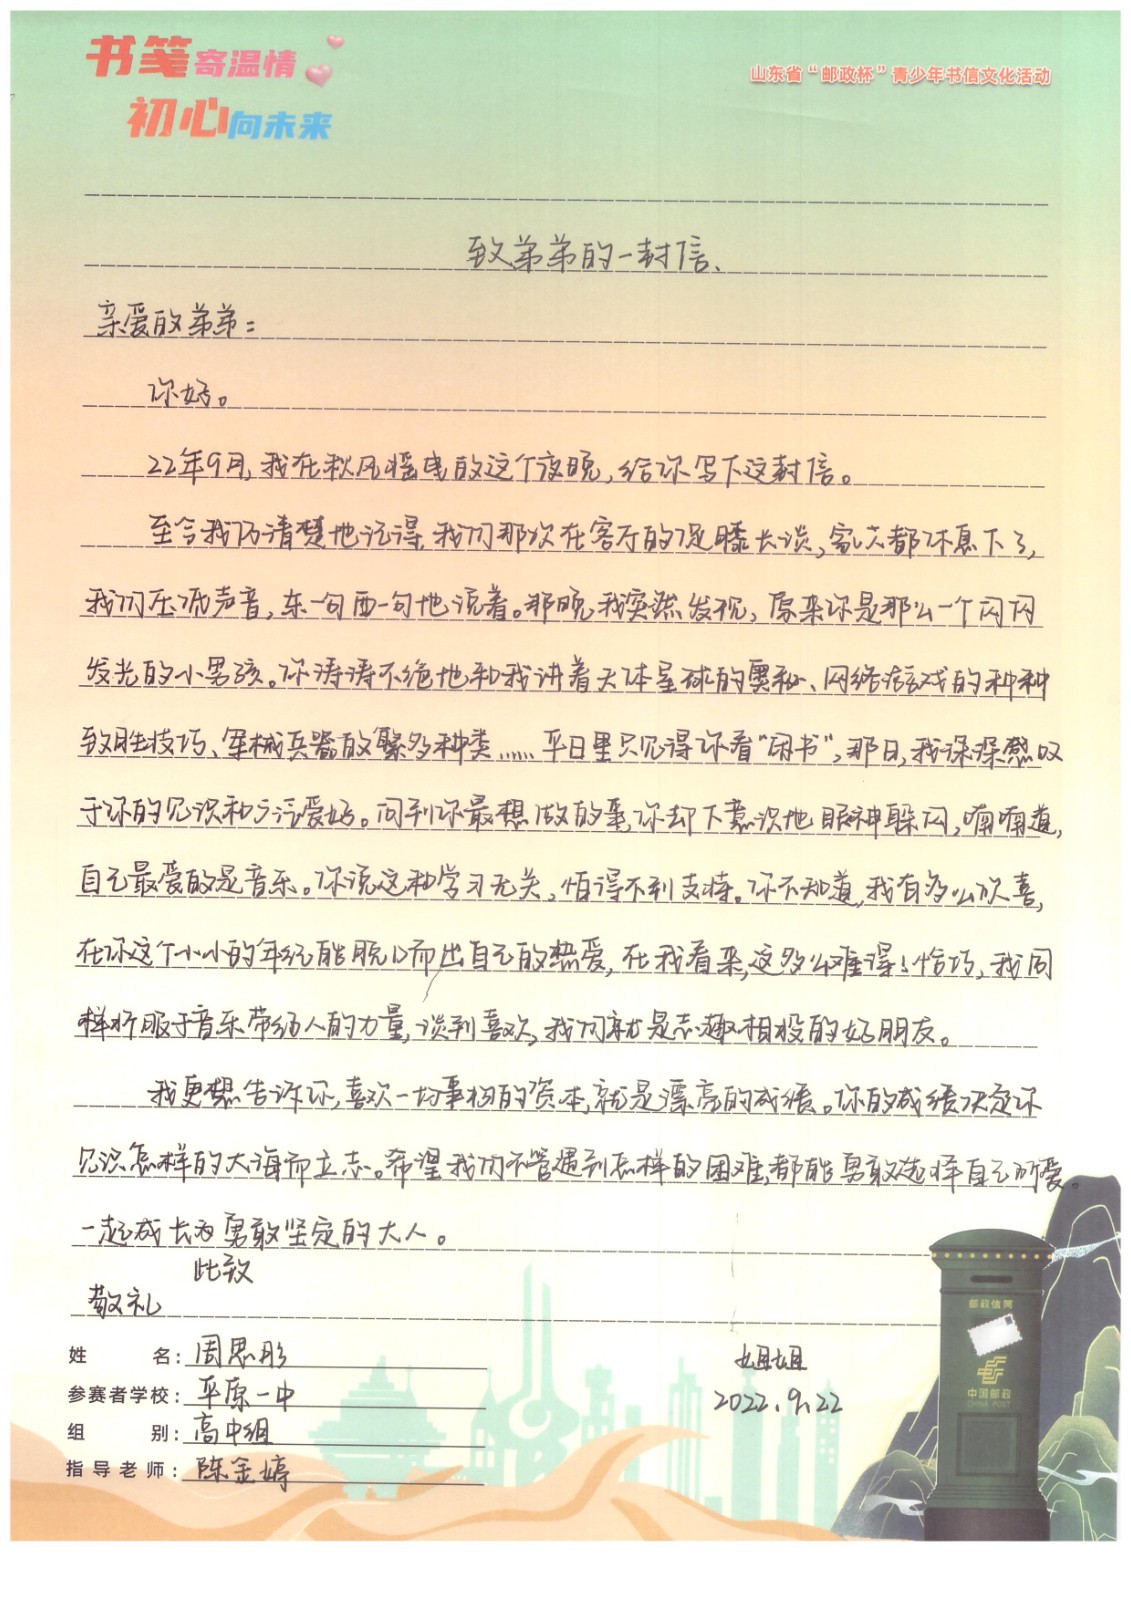 书笺寄温情
初心向未来
山东省“邮政杯”青少年书信文化活动
致弟弟的一封信、
亲爱的弟弟：
你好。
22年9月，我在秋风摇曳的这个夜晚，给你写下这封信。
至今我仍清楚地记得，我们那次在客厅的促膝长谈，家人都休息下了，
我们压低声音，东一句西一句地说着。那晚，我突然发现，原来你是那么一个闪闪
发光的小男孩。你涛涛不绝地和我讲着天体星球的奥秘、网络游戏的种种
致胜技巧、军械兵器的繁多种类……平日里只见得你看“闲书”，那日，我深深感叹
于你的见识和广泛爱好。问到你最想做的事，你却下意识地眼神躲闪，喃喃道，
自己最爱的是音乐。你说这和学习无关，怕得不到支持。你不知道，我有多么欣喜，
在你这个小小的年纪能脱口而出自己的热爱，在我看来，这多么难得！恰巧，我同
样折服于音乐带给人的力量，谈到喜欢，我们就是志趣相投的好朋友。
我更想告诉你，喜欢一切事物的资本，就是漂亮的成绩。你的成绩决定你
见识怎样的大海而立志。希望我们不管遇到怎样的困难，都能勇敢选择自己所爱
一起成长为勇敢坚定的大人。
此致
敬礼
姓 名：周思彤
姐姐
参赛者学校：平原一中
2022.9.22
组 别：高中组
指导老师：陈金婷
邮政信筒
中国邮政
CHINA POST